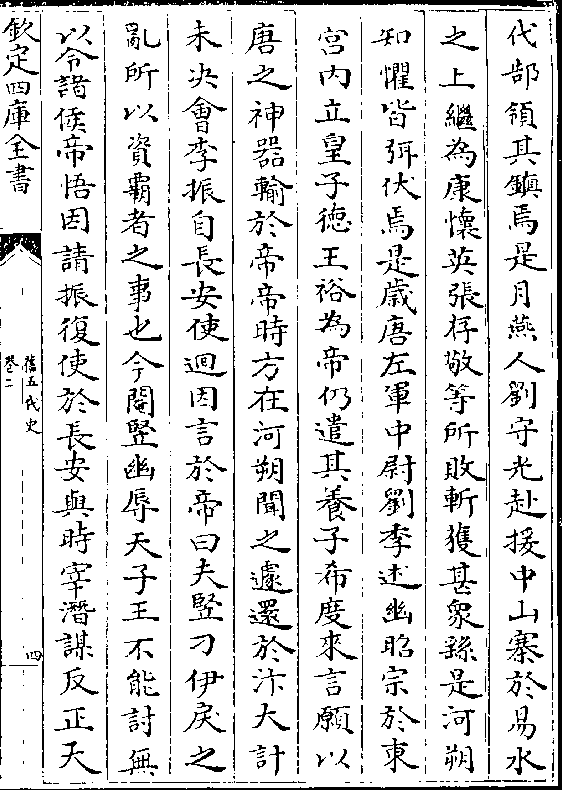 代郜領其鎮焉是月燕人劉守光赴援中山寨於易水
之上繼為康懷英張存敬等所敗斬獲甚衆繇是河朔
知懼皆弭伏焉是歲唐左軍中尉劉季述幽昭宗於東
宫内立皇子徳王裕為帝仍遣其養子希度來言願以
唐之神器輸於帝帝時方在河朔聞之遽還於汴大計
未决會李振自長安使迴因言於帝曰夫豎刁伊戾之
亂所以資霸者之事也今閹豎幽辱天子王不能討無
以令諸侯帝悟因請振復使於長安與時宰潛謀反正天
欽定四庫全書
舊五代史
卷二
四